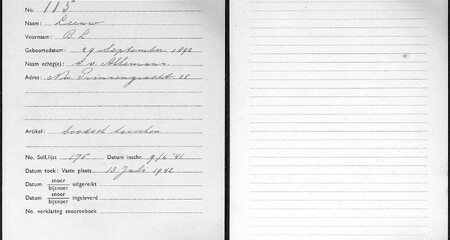 No. 115
Naam: Leeuw
Voornaam: B. L
Geboortedatum: 29 September 1892
Naam echtg(e):
Adres: Nw. Prinsengracht 25
Artikel:
No. Soll.lijst 175 Datum inschr. 9/6 '41
Datum toek: Vaste plaats 13 Juli 1942
Datum snoer
bijsnoer uitgereikt
Datum snoer
bijsnoer ingeleverd
No. verklaring snoerenboek